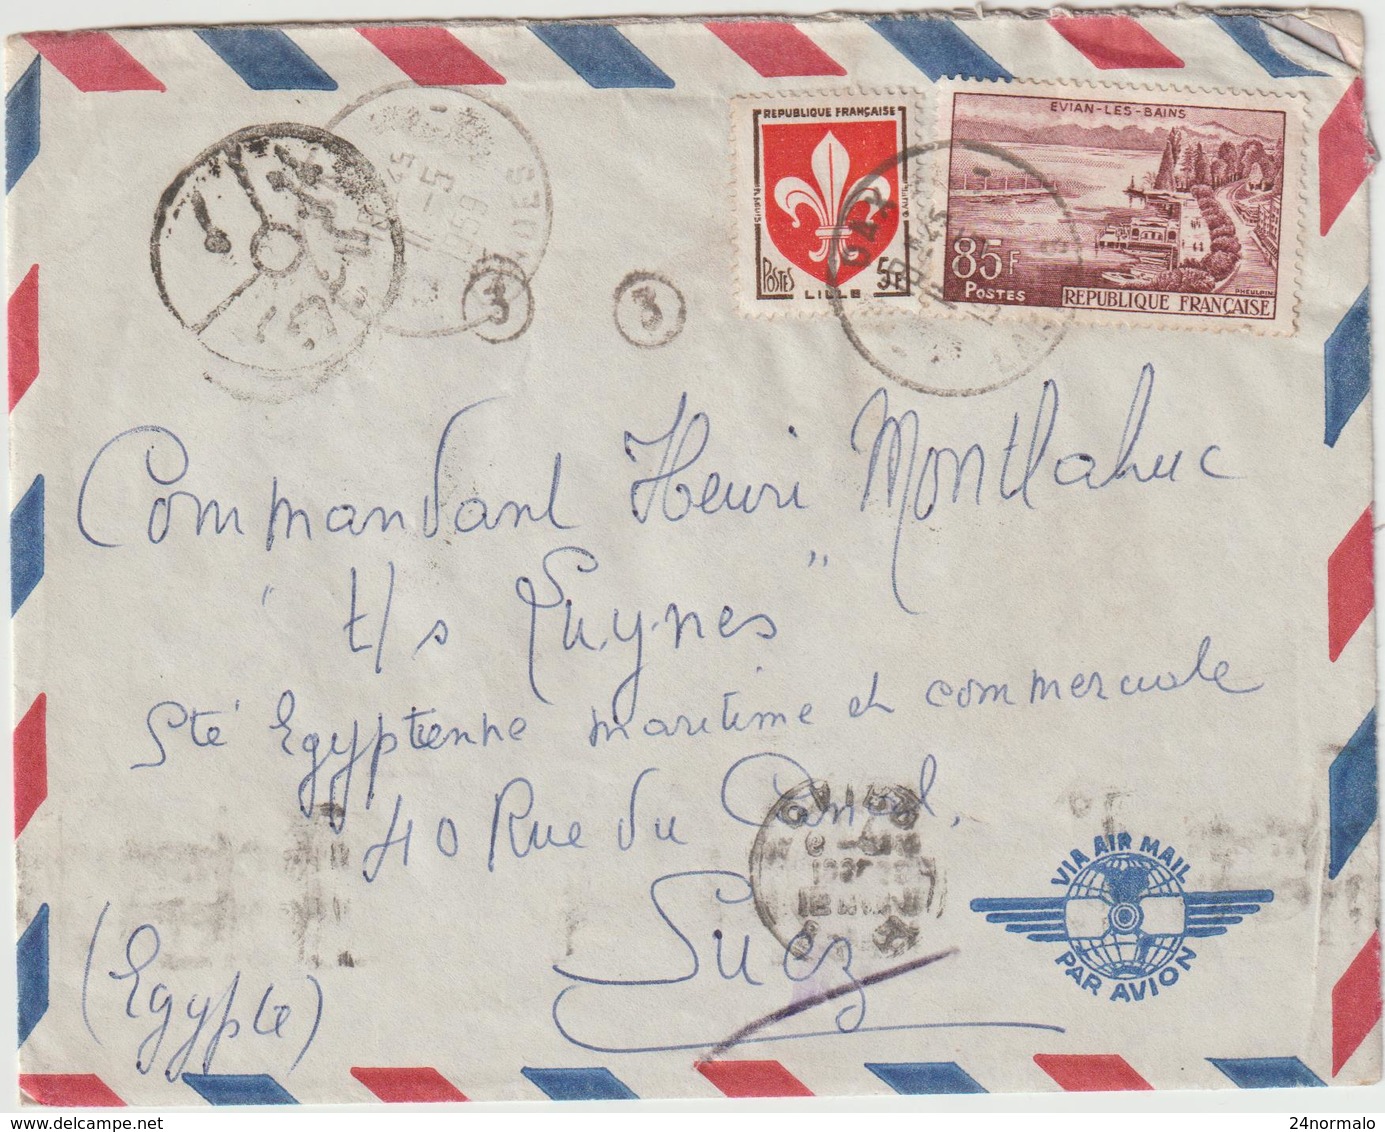 REPUBLIQUE FRANÇAISE
POSTES
5F
LILLE
EVIAN-LES-BAINS
85F
POSTES
PHEULPIN
REPUBLIQUE FRANÇAISE
DAX
3
3
Commandant Henri Montlahuc
"t/s Euynes"
Sté Egyptienne maritime et commerciale
40 Rue du Canal,
Suez
(Egypte)
VIA AIR MAIL
PAR AVION
www.delcampe.net
24normalo